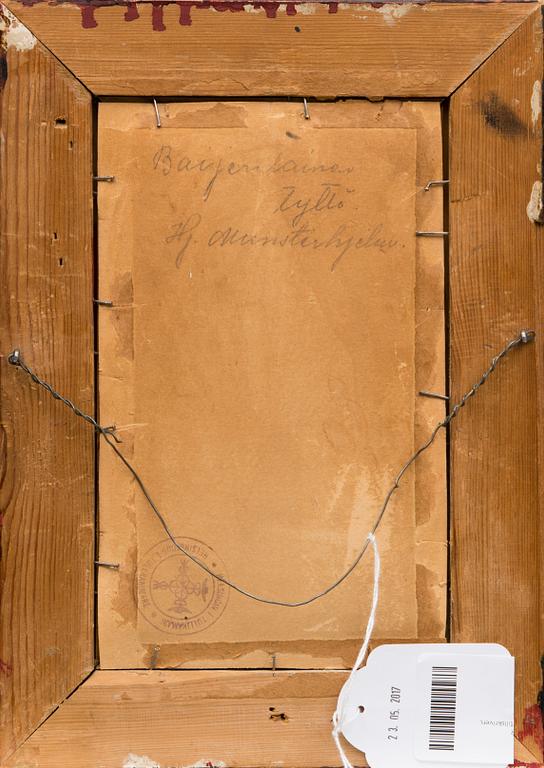 Baijerilainen
tyttö.
Hj. Munsterhjelm.
TULLIKAMARI
23. 05. 2017